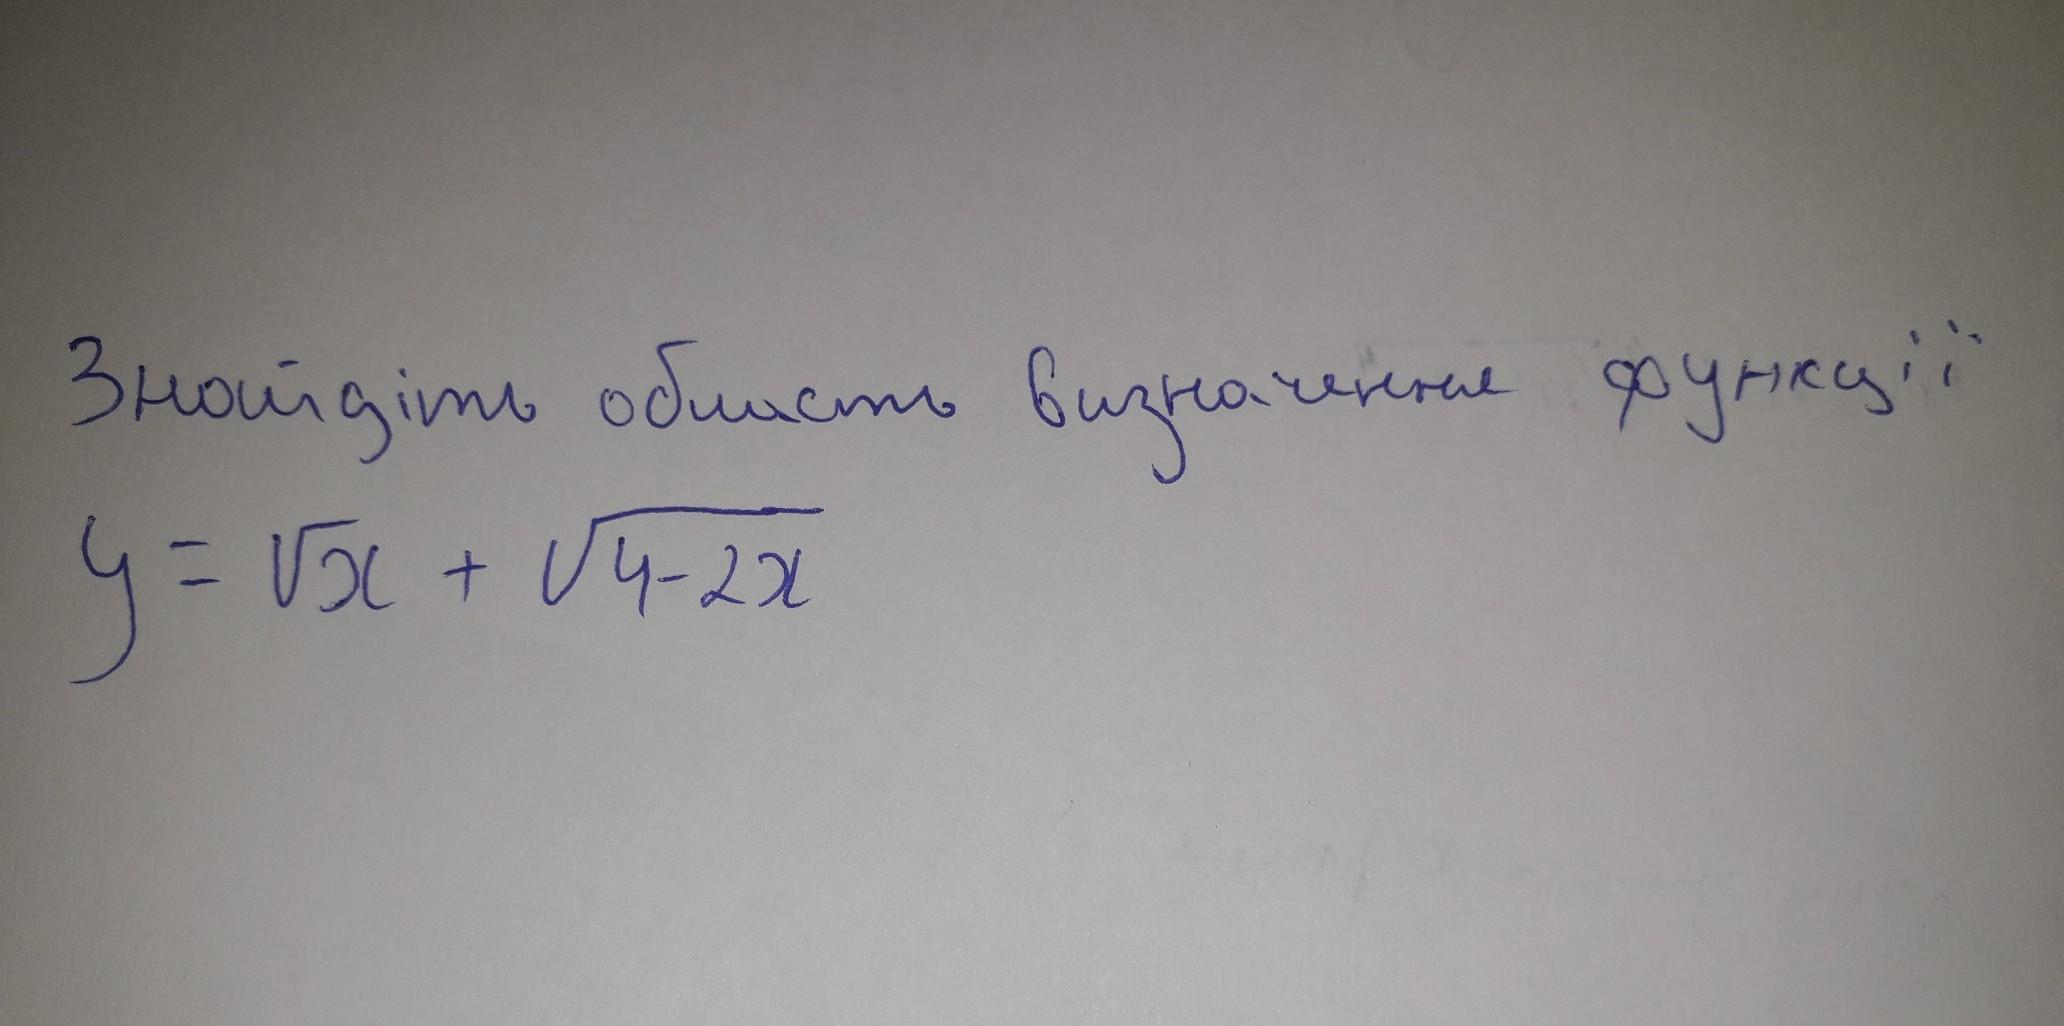 Знайдіть область визначення функції
y = √x + √4-2x